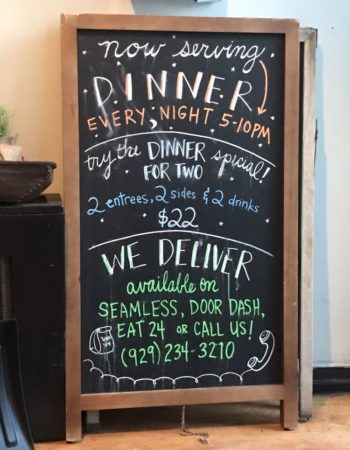 now serving
DINNER
EVERY NIGHT 5-10PM
try the DINNER special!
FOR TWO
2 entrees, 2 sides & 2 drinks
$22
WE DELIVER
available on
SEAMLESS, DOOR DASH,
EAT 24 OR CALL US!
(929) 234-3210